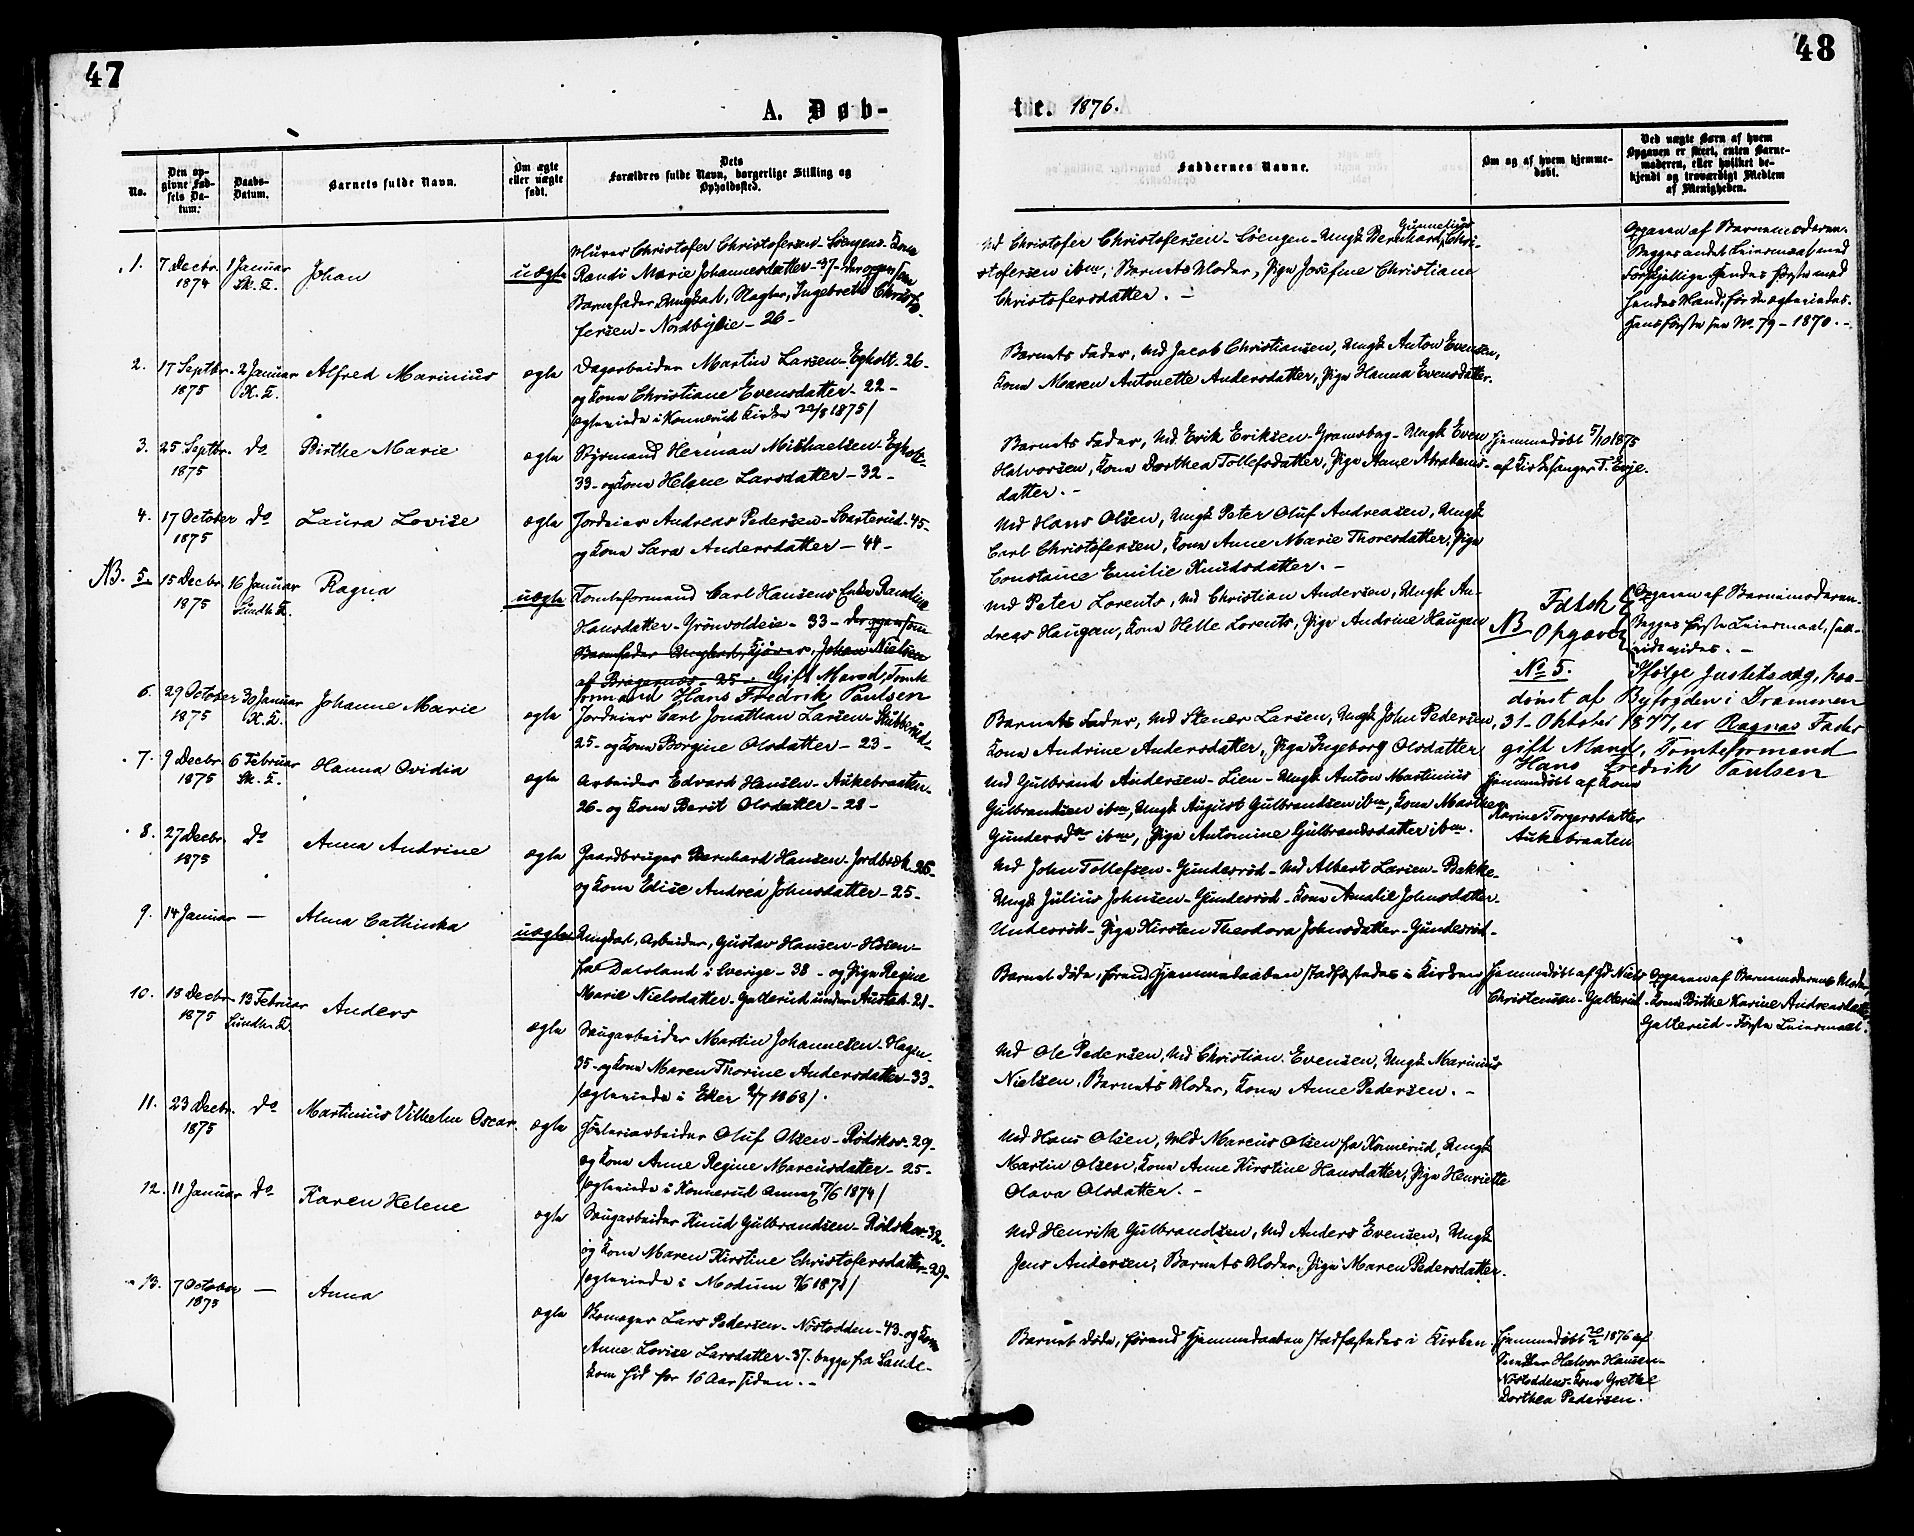 47
48
A. Døb-
te. 1876.
No.
Den op-
givne Fød-
sels Da-
tum.
Daabs-
Datum.
Barnets fulde Navn.
Om ægte
eller uægte
født.
Dets
Forældres fulde Navn, borgerlige Stilling og
Opholdssted.
Faddernes Navne.
Om og af hvem hjemme-
døbt.
Ved uægte Børn af hvem
Opgaven er skeet, enten Barne-
moderen, eller hvilket be-
kjendt og troværdigt Medlem
af Menigheden.
1.
7 Decbr.
1874
1 Januar
Sk. K.
Johan
uægte
Murer Christofer Christofersen - Soengens Kone
Randi Marie Johannesdatter - 37 - der opgav som
Barnefader Ungdsk. Slagter, Ingebreth Christo-
fersen - Nordbyeie - 26 -
Md Christofer Christofersen - Soengen - Ungk Bernhard Gunnelius Chri-
stofersen ibm, Barnets Moder, Pige Josefine Christiane
Christofersdatter. -
Opgaven af Barnemoderen.
Begges andet Leiermaal med
forskjellige Hendes første med
hendes Mand, før de ægteviedes.
Hans første see No 79 - 1870. -
2.
17 Septbr.
1875
2 Januar
K. K.
Alfred Marinius
ægte
Dagarbeider Martin Larsen - Egholt - 26 -
og Kone Christiane Evensdatter - 22 -
/ægteviede i Konnerud Kirke 22/8 1875/
Barnets Fader, Md Jacob Christiansen, Ungk Anton Evensen,
Kone Maren Antonette Andersdatter, Pige Hanna Evensdatter.
3.
25 Septbr.
1875
do
Birthe Marie
ægte
Styrmand Herman Michaelsen - Egholt -
33 - og Kone Helene Larsdatter - 32 -
Barnets Fader, Md Erik Eriksen - Gramsbag - Ungk Even
Halvorsen, Kone Dorthea Tollefsdatter, Pige Aane Abrahams-
datter. -
Hjemmedøbt 5/10 1875
af Kirkesanger T. Evje.
4.
17 October
1875
do
Laura Lovise
ægte
Jordeier Andreas Pedersen - Starterud - 45 -
og Kone Sara Andersdatter - 44 -
Md Hans Olsen, Ungk Peter Oluf Andreasen, Ungk
Carl Christofersen, Kone Anne Marie Thoresdatter, Pige
Constance Emilie Knudsdatter. -
NB. 5.
15 Decbr.
1875
16 Januar
Sundh. K.
Ragna
uægte
Tomteformand Carl Hansens Enke Randine
Hansdatter - Grønvoldeie - 33 - der opgav som
Barnefader Ungkarl, Kjører, Johan Nielsen
af Bragernæs - 25 - Gift Mand, Tomte
formand Hans Fredrik Paulsen
Md Peter Lorents, Md Christian Andersen, Ungk An-
dreas Haugan, Kone Helle Lorents, Pige Andrine Haugan
NB Falsk
Opgave
No 5.
Opgaven af Barnemoderen.
Begges første Leiermaal, saa-
vidt vides. -
Ifølge Justitssag, paa-
dømt af Byfogden i Drammen
31. Oktober 1877, er Ragnas Fader
gift Mand, Tomteformand
Hans Fredrik Paulsen
6.
29 October
1875
30 Januar
K. K.
Johanne Marie
ægte
Jordeier Carl Jonathan Larsen - Stubberud -
25 - og Kone Borgine Olsdatter - 23 -
Barnets Fader, Md Stener Larsen, Ungk John Pedersen,
Kone Andrine Andersdatter, Pige Ingeborg Olsdatter
7.
9 Decbr.
1875
6 Februar
Sk. K.
Hanna Ovidia
ægte
Arbeider Edvard Hansen - Aukebraaten -
26 - og Kone Berit Olsdatter - 28 -
Md Gulbrand Andersen - Lien - Ungk Anton Martinius
Gulbrandsen ibm, Ungk August Gulbrandsen ibm, Kone Marthea
Gundersdtr ibm, Pige Antomine Gulbrandsdatter ibm.
Hjemmedøbt af Kone
Karine Torgersdatter
Aukebraaten
8.
27 Decbr.
1875
do
Anna Andrine
ægte
Gaardbruger Bernhard Hansen - Jordbræk - 25 -
og Kone Edise Andrea Johnsdatter - 25 -
Md John Tollefsen - Gundesrød - Md Albert Larsen - Bakke -
Ungk Julius Johnsen - Gundesrød - Kone Amalie Johnsdatter
Undesrøk - Pige Kirsten Theodora Johnsdatter - Gundesrød -
9.
14 Januar
-
Alma Cathinka
uægte
Ungdsk, Arbeider, Gustav Hansen - Hosen -
fra Dalsland i Sverige - 38 - og Pige Regine
Marie Nielsdatter - Galterud under Austad - 21 -
Barnet døde, førend Hjemmedaaben stadfæstedes i Kirken
Hjemmedøbt af Gd Niels
Christensen - Galterud -
Opgaven af Barnemoderens Moder
Kone Birthe Karine Andreasdatter
Galterud - Første Leiermaal.
10.
18 Decbr.
1875
13 Februar
Sundh. K.
Anders
ægte
Saugarbeider Martin Johannesen - Hagen -
35 - og Kone Maren Thorine Andersdatter - 33 -
/ægteviede i Eker 2/7 1868/.
Md Ole Pedersen, Md Christian Evensen, Ungk Marinius
Nielsen, Barnets Moder, Kone Anne Pedersen. -
11.
23 Decbr.
1875
do
Martinius Vilhelm Oscar.
ægte
Høvleriarbeider Oluf Olsen - Rødskov - 29 -
og Kone Anne Regine Marcusdatter - 25 -
/ægteviede i Konnerud Annex 7/6 1874/
Md Hans Olsen, Md Marcus Olsen fra Konnerud, Ungk
Martin Olsen, Kone Anne Kirstine Hansdatter, Pige Henriette
Olava Olsdatter. -
12.
11 Januar
do
Karen Helene
ægte
Saugarbeider Knud Gulbrandsen - Rødskov - 32 -
og Kone Maren Kirstine Christofersdatter - 29 -
/ægteviede i Modum 1871/
Md Henrik Gulbrandsen, Md Anders Evensen, Ungk
Jens Andersen, Barnets Moder, Pige Maren Pedersdatter.
13.
7 October
1875
-
Anna
ægte
Skomager Lars Pedersen - Nøstodden - 43 - og Kone
Anne Lovise Larsdatter - 37 - begge fra Sande -
Kom hid for 16 Aar siden. -
Barnet døde, førend Hjemmedaaben stadfæstedes i Kirken
Hjemmedøbt 20/2 1876 af
Halvor Hansen -
Nøstoddens Kone Grethe
Dorthea Pedersen.